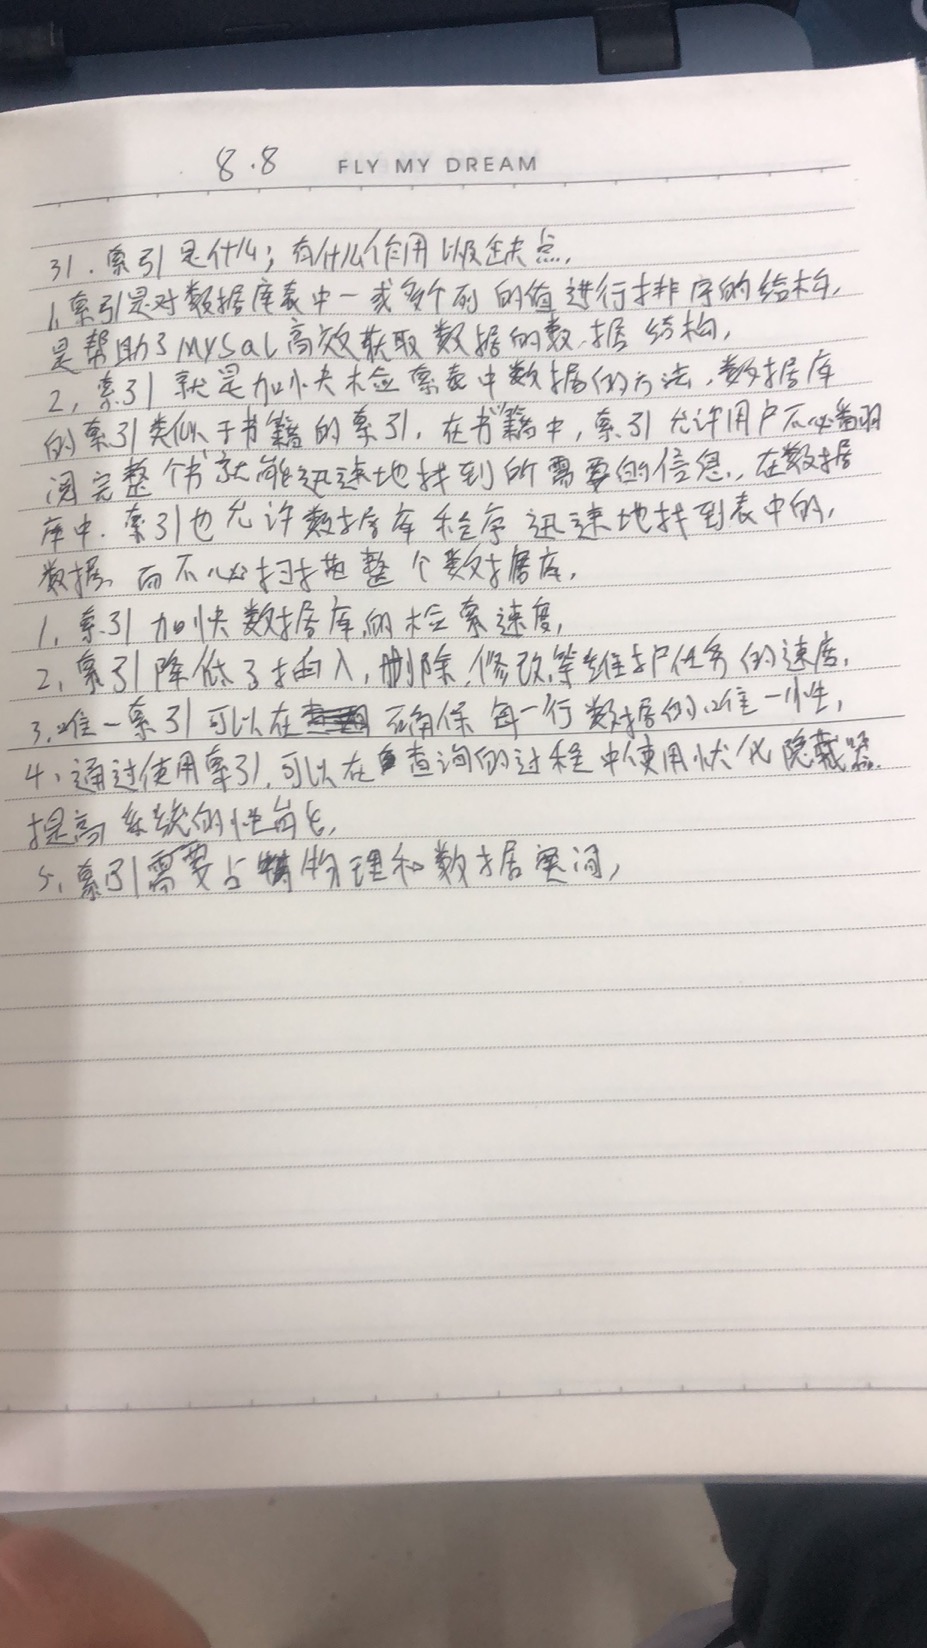 8.8 FLY MY DREAM
31.索引是什么;有什么作用以及缺点.
1.索引是对数据库表中一或多个列的值进行排序的结构,
是帮助了MySQL高效获取数据的数据结构,
2,索引就是加快检索表中数据的方法,数据库
的索引类似于书籍的索引.在书籍中,索引允许用户不必翻
阅完整个书就能迅速地找到所需要的信息.,在数据
库中.索引也允许数据库程序迅速地找到表中的,
数据,而不必扫描整个数据库,
1,索引加快数据库的检索速度,
2,索引降低了插入,删除,修改,等维护任务的速度,
3.唯一索引可以在确保每一行数据的唯一性,
4、通过使用索引,可以在查询的过程中使用优化隐藏器.
提高系统的性能,
5、索引需要占物理和数据空间,